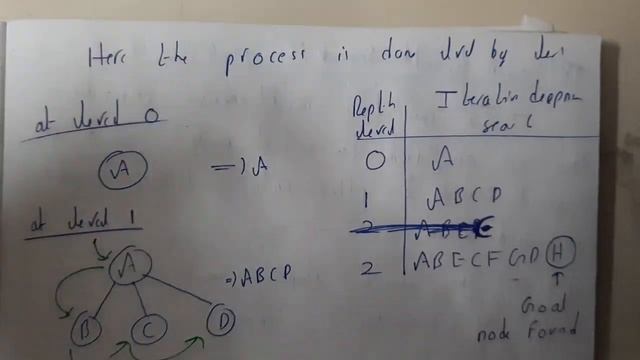 Here the process is done level by level
at level 0
A => A
at level 1
A => ABCD
B C D
Depth level Iteration deepning search
0 A
1 A B C D
2 A B E C F G D H
Goal node Found